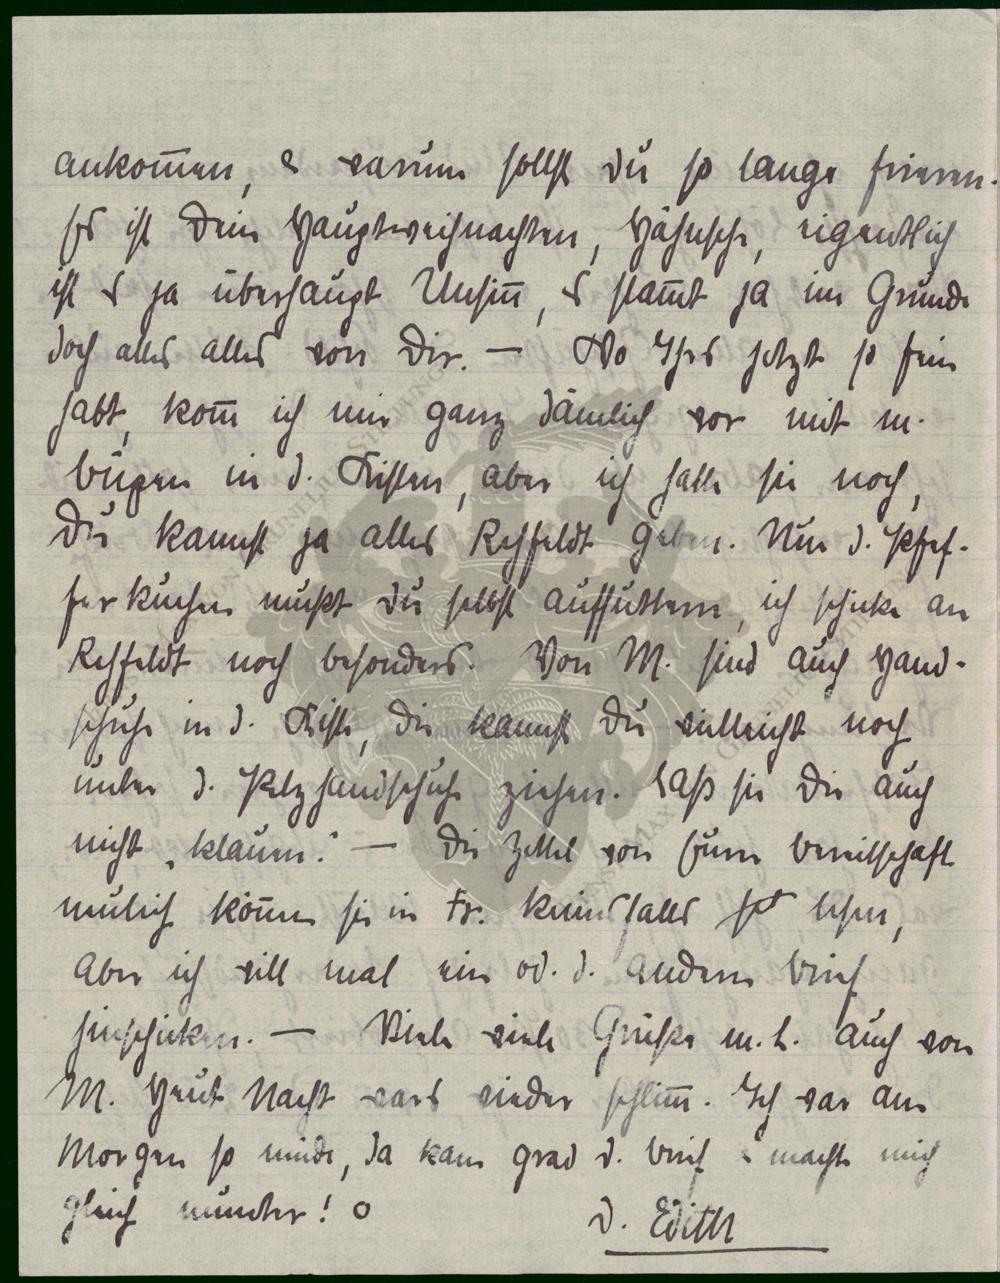 ankom̅en, & warum sollst Du so lange frieren.
Es ist Dein Hauptweihnachten, Hähnsche, eigentlich
ist es ja überhaupt Unsin̅, es stam̅t ja im Grunde
doch alles alles von Dir. — Wo Ihrs jetzt so fein
habt, kom̅ ich mir ganz dämlich vor mit m.
in d. Kisten, aber ich hatte sie noch,
Du kannst ja alles Rehfeldt geben. Nur d. Pfef-
ferkuchen mußt Du selbst auffuttern, ich schicke an
Rehfeldt noch besonders. Von M. sind auch Hand-
schuhe in d. Kiste, die kannst Du vielleicht noch
unter d. Pelzhandschuhe ziehen. Laß sie Dir auch
nicht „klauen“. — Die Zettel von Eurer Bereitschaft
neulich kön̅en sie in Fr. keinesfalls lesen,
aber ich will mal ein od. d. andern Brief
hinschicken. — Viele viele Grüße m. L. auch von
M. Heut Nacht wars wieder schlim̅. Ich war am
Morgen so müde, da kam grad d. Brief & machte mich
gleich munter! o
D. Edith